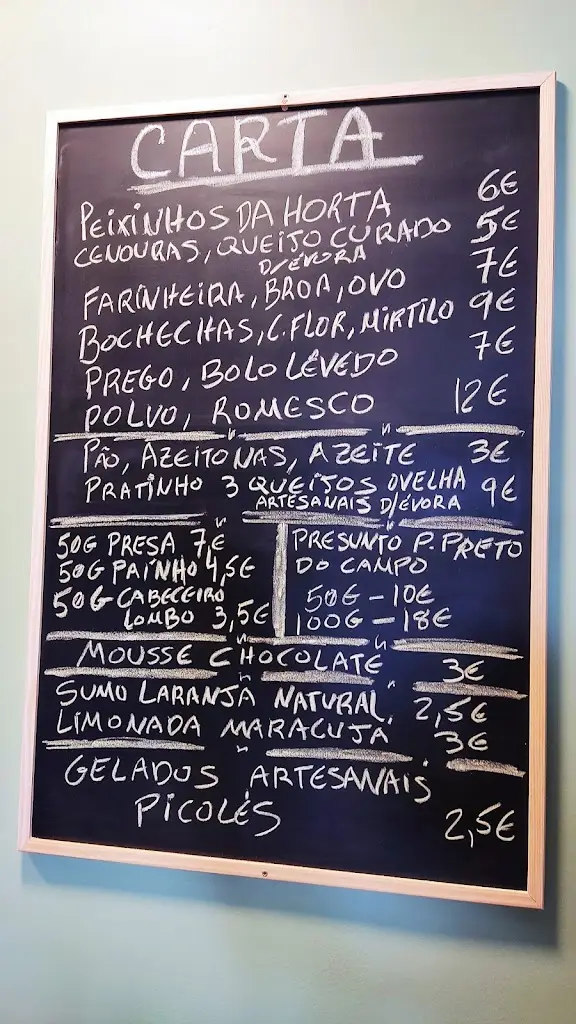 CARTA
PEIXINHOS DA HORTA 6€
CENOURAS, QUEIJO CURADO 5€
D/ÉVORA
FARINHEIRA, BROA, OVO 7€
BOCHECHAS, C.FLOR, MIRTILO 9€
PREGO, BOLO LÊVEDO 7€
POLVO, ROMESCO 12€
PÃO, AZEITONAS, AZEITE 3€
PRATINHO 3 QUEIJOS OVELHA 9€
ARTESANAIS D/ÉVORA
50G PRESA 7€
50G PAINHO 4,5€
50G CABECEIRO
LOMBO 3,5€
PRESUNTO P. PRETO
DO CAMPO
50G - 10€
100G - 18€
MOUSSE CHOCOLATE 3€
SUMO LARANJA NATURAL 2,5€
LIMONADA MARACUJÁ 3€
GELADOS ARTESANAIS
PICOLÉS 2,5€